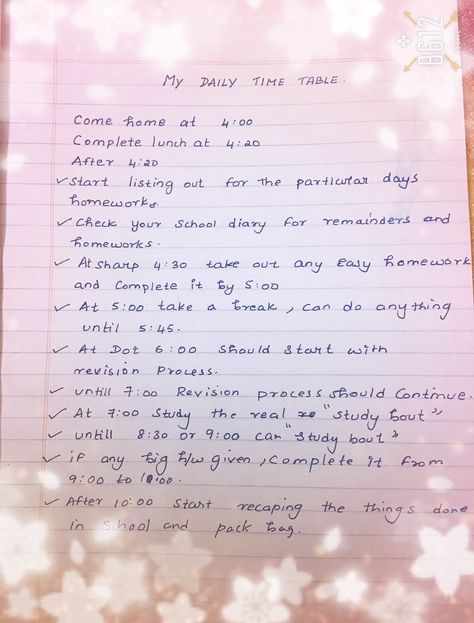 B612
MY DAILY TIME TABLE.
Come home at 4:00
Complete lunch at 4:20
After 4:20
✓ Start listing out for the particular days
homeworks.
✓ Check your school diary for remainders and
homeworks.
✓ At sharp 4:30 take out any Easy homework
and Complete it by 5:00
✓ At 5:00 take a break, can do anything
until 5:45.
✓ At Dot 6:00 should start with
revision Process.
✓ untill 7:00 Revision process should Continue.
✓ At 7:00 Study the real "study bout"
✓ untill 8:30 or 9:00 can "study bout"
✓ if any big h/w given, complete it from
9:00 to 10:00.
✓ After 10:00 start recaping the things done
in school and pack bag.